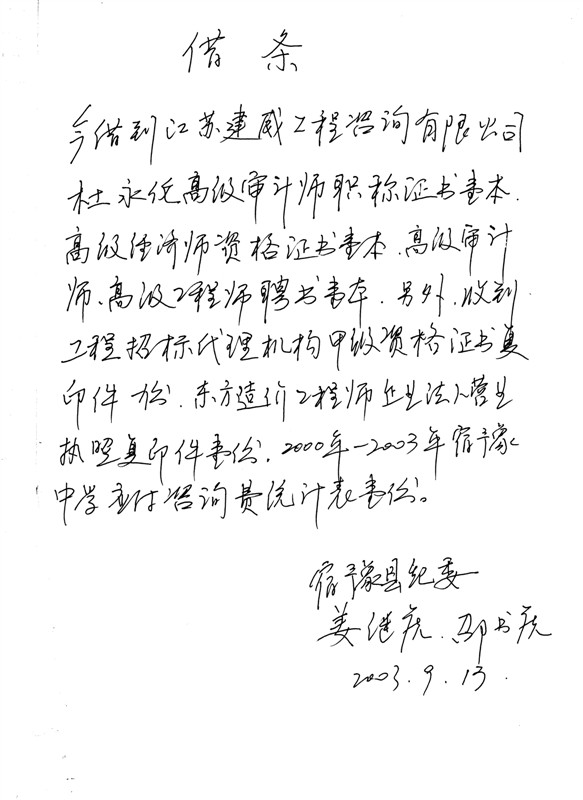 借 条
今借到江苏建威工程咨询有限公司
杜永优高级审计师职称证书壹本.
高级经济师资格证书壹本.高级审计
师、高级工程师聘书壹本.另外,收到
工程招标代理机构甲级资格证书复
印件 份.东方造价工程师企业法人营业
执照复印件壹份.2000年—2003年宿豫
中学应付咨询费统计表壹份。
宿豫县纪委
姜继虎.邵书虎
2003.9.13.